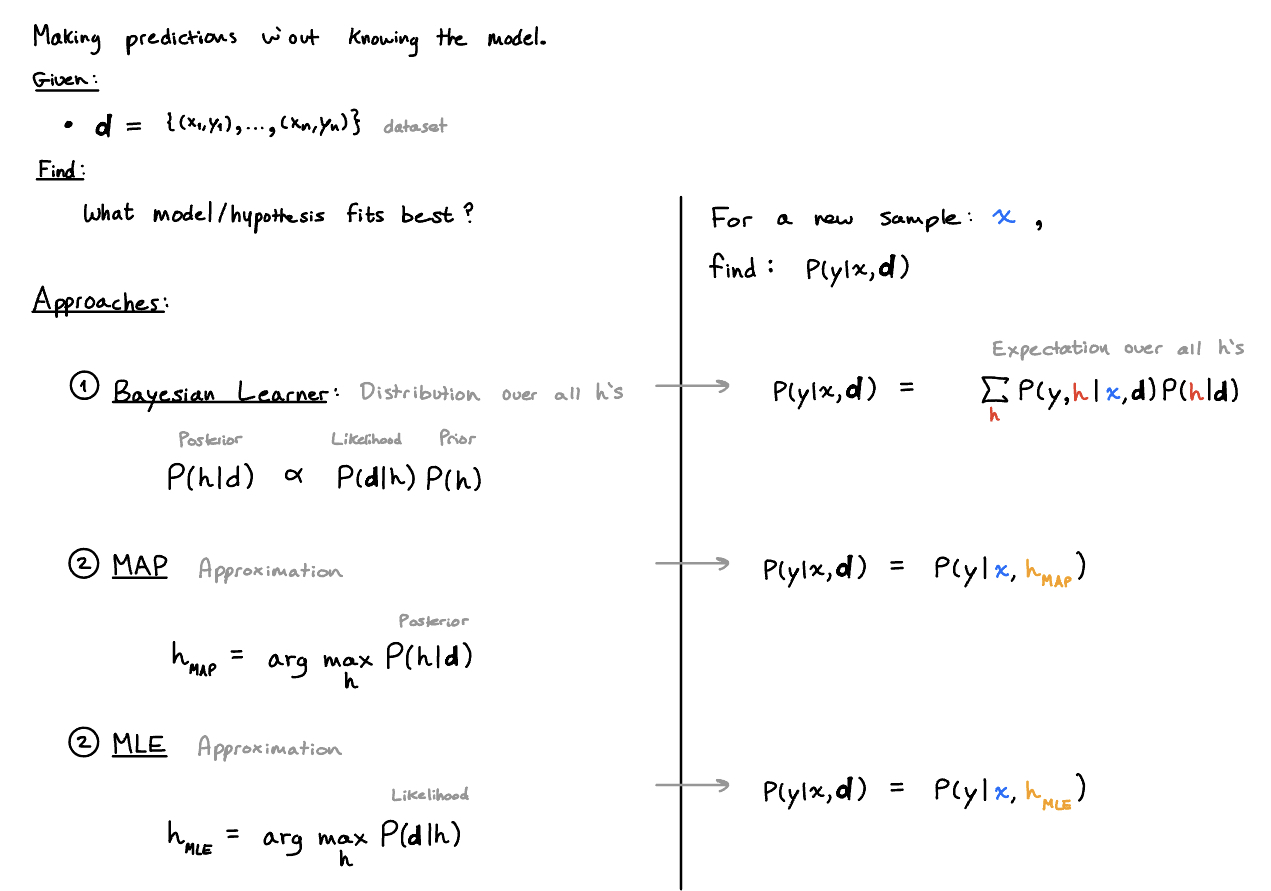 Making predictions w'out knowing the model.
Given:
• d = {(x₁,y₁),...,(xₙ,yₙ)} dataset
Find:
What model/hypothesis fits best?
Approaches:
① Bayesian Learner: Distribution over all h's
Posterior Likelihood Prior
P(h|d) ∝ P(d|h) P(h)
② MAP Approximation
Posterior
h_MAP = arg max_h P(h|d)
② MLE Approximation
Likelihood
h_MLE = arg max_h P(d|h)
For a new sample: x,
find: P(y|x,d)
Expectation over all h's
→ P(y|x,d) = ∑_h P(y,h|x,d)P(h|d)
→ P(y|x,d) = P(y|x, h_MAP)
→ P(y|x,d) = P(y|x, h_MLE)